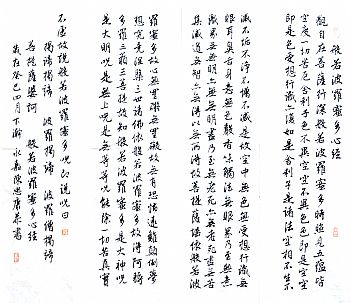 般若波羅蜜多心経
觀自在菩薩行深般若波羅蜜多時照見五蘊皆
空度一切苦厄舍利子色不異空空不異色色即是空空
即是色受想行識亦復如是舍利子是諸法空相不生不
滅不垢不淨不增不減是故空中無色無受想行識無
眼耳鼻舌身意無色聲香味觸法無眼界乃至無意
識界無無明亦無無明盡乃至無老死亦無老死盡無苦
集滅道無智亦無得以無所得故菩提薩埵依般若波
羅蜜多故心無罣礙無罣礙故無有恐怖遠離顛倒夢
想究竟涅槃三世諸佛依般若波羅蜜多故得阿耨
多羅三藐三菩提故知般若波羅蜜多是大神咒
是大明咒是無上咒是無等等咒能除一切苦真實
不虛故說般若波羅蜜多咒即說咒曰
揭諦揭諦 波羅揭諦 波羅僧揭諦
菩提薩婆訶 般若波羅蜜多心経
歲在癸巳四月下澣 永嘉陳忠康 書